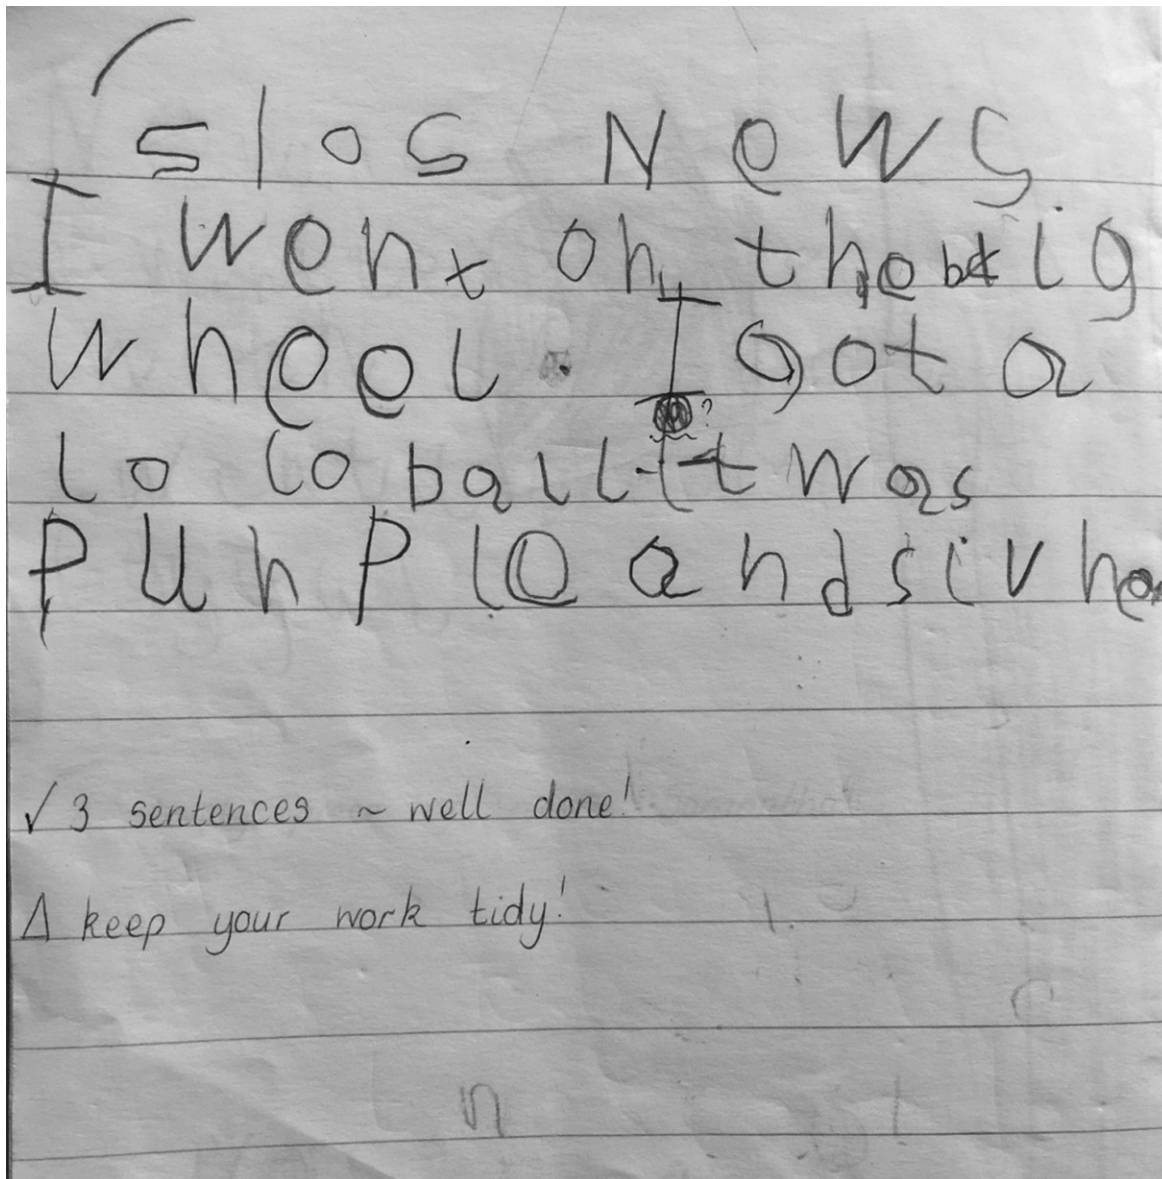 slos News
I went on the big
wheel. I got a
lo lo ball. it was
punple and sivhe
✓ 3 sentences ~ well done!
Δ keep your work tidy!